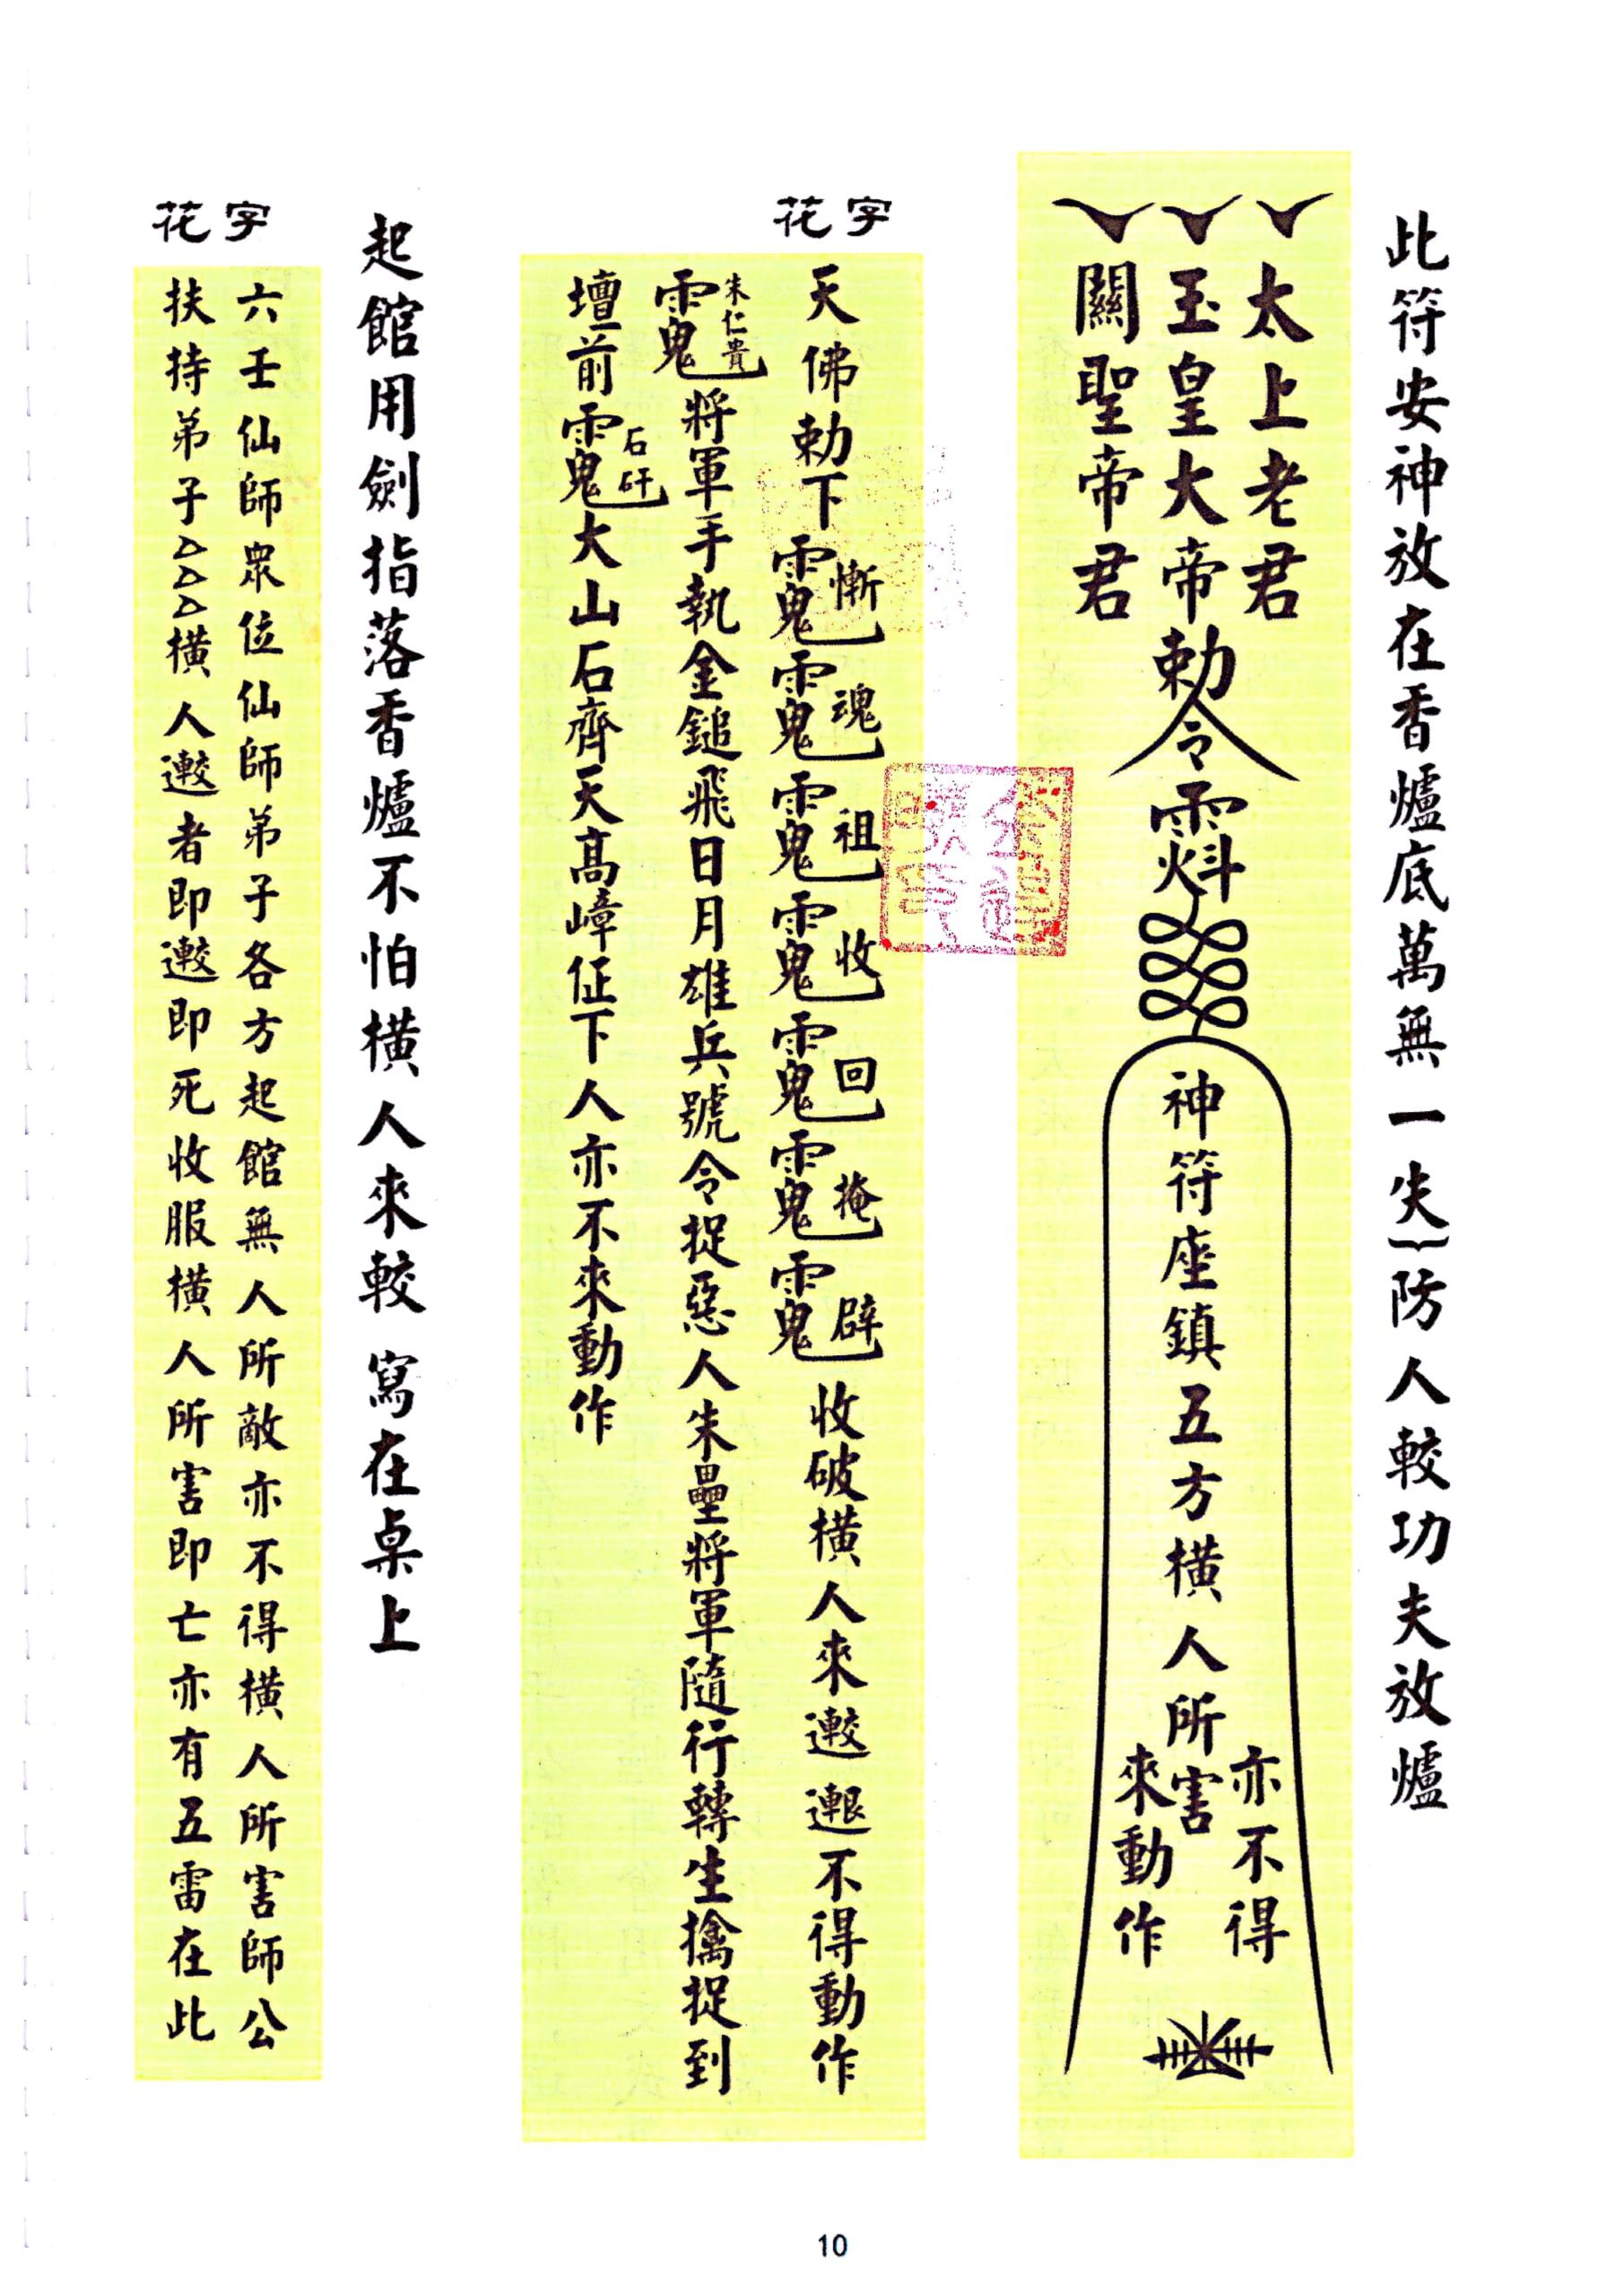 此符安神放在香爐底萬無一失 防人較功夫放爐
太上老君
玉皇大帝勅令
關聖帝君
神符座鎮五方橫人所害
亦不得
來動作
花字
天佛勅下
慚
魂
祖
收
回
掩
辟
收破橫人來 不得動作
朱仁貴
將軍手執金鎚飛日月雄兵號令捉惡人朱壘將軍隨行轉生擒捉到
壇前
石矸
大山石齊天高嶂怔下人亦不來動作
起館用劍指落香爐不怕橫人來較 寫在桌上
花字
六壬仙師眾位仙師弟子各方起館無人所敵亦不得橫人所害師公
扶持弟子△△△橫人 者即 即死收服橫人所害即亡亦有五雷在此
10